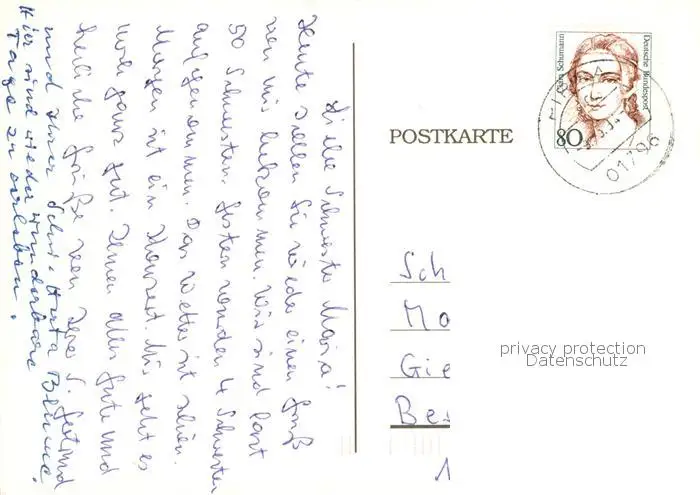 Liebe Schwester Maria!
Heute sollen Sie wieder einen Gruß
von uns bekommen. Wir sind fast
50 Schwestern. Gestern wurden 4 Schwestern
aufgenommen. Das Wetter ist schön.
Morgen ist ein Konzert. Mir geht es
noch ganz gut. Ihnen alles Gute und
herzliche Grüße von Ihrer S. Gertrud
und Ihrer Schw. Herta
Hier sind wieder wunderbare
Tage zu erleben.
POSTKARTE
Clara Schumann
Deutsche Bundespost
80
01796
Sch
Ma
Gie
Be
1
privacy protection
Datenschutz